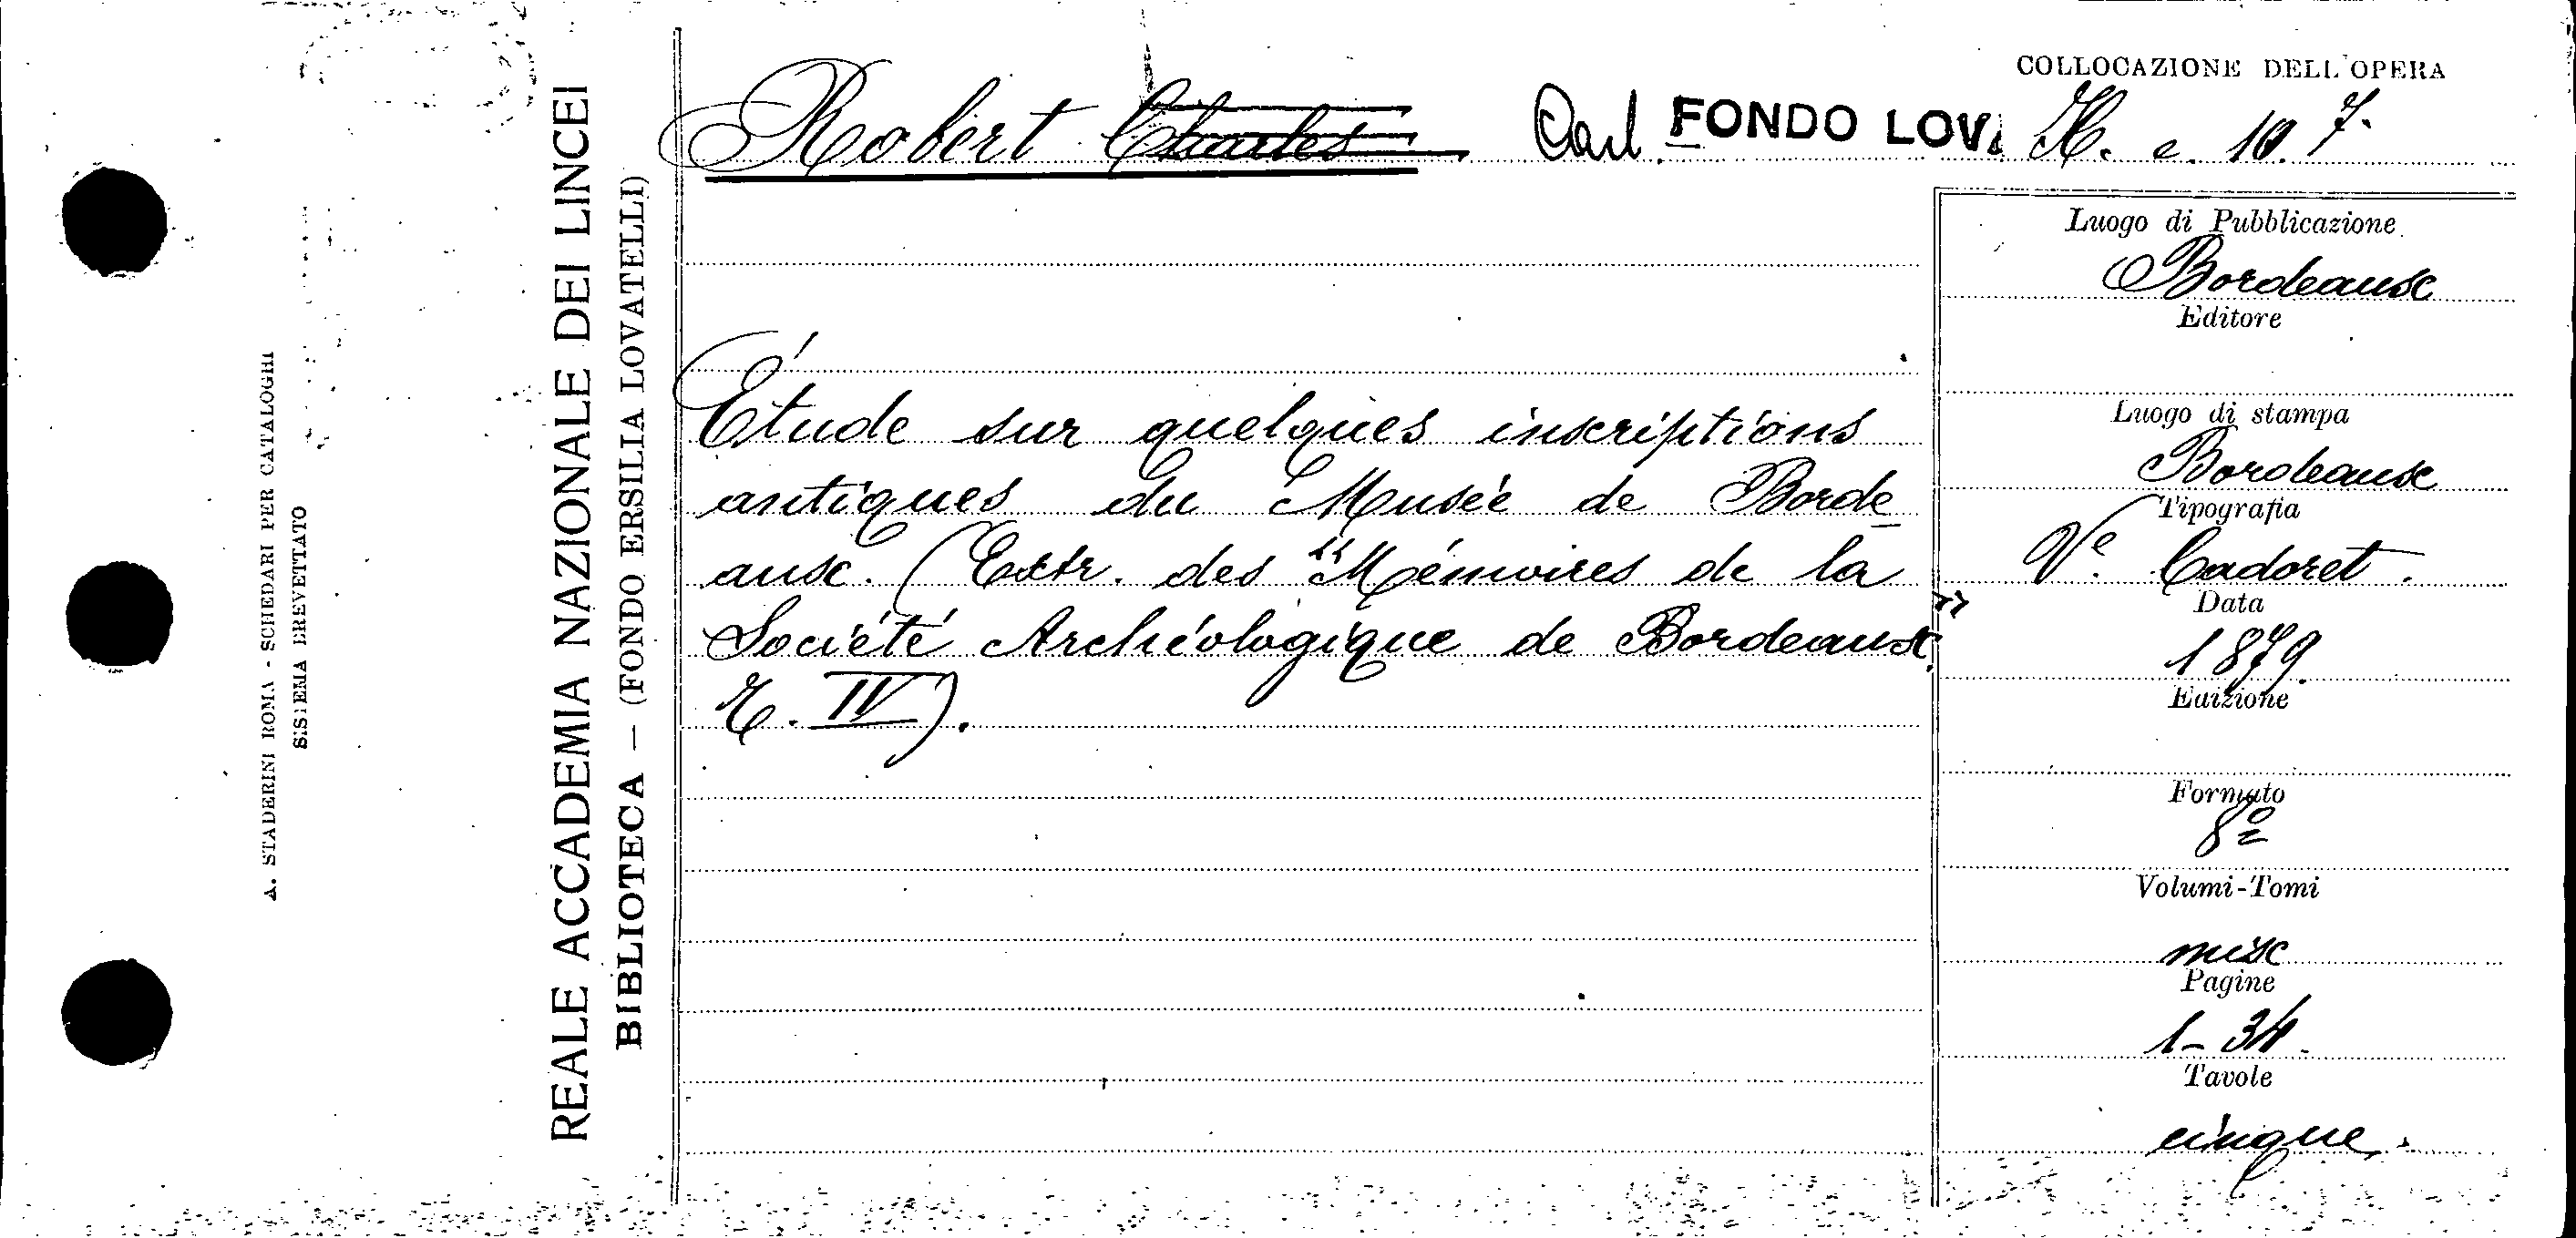 COLLOCAZIONE DELL'OPERA
Robert Charles Carl FONDO LOV. H. e. 10. 7.
Étude sur quelques inscriptions
antiques du Musée de Borde
aux. (Extr. des "Mémoires de la
Société Archéologique de Bordeaux"
T. IV).
Luogo di Pubblicazione
Bordeaux
Editore
Luogo di stampa
Bordeaux
Tipografia
Vᵉ Cadoret.
Data
1879.
Edizione
Formato
8º
Volumi-Tomi
misc
Pagine
1-34.
Tavole
cinque.
REALE ACCADEMIA NAZIONALE DEI LINCEI
BIBLIOTECA — (FONDO ERSILIA LOVATELLI)
A. STADERINI ROMA - SCHEDARI PER CATALOGHI
SISTEMA BREVETTATO